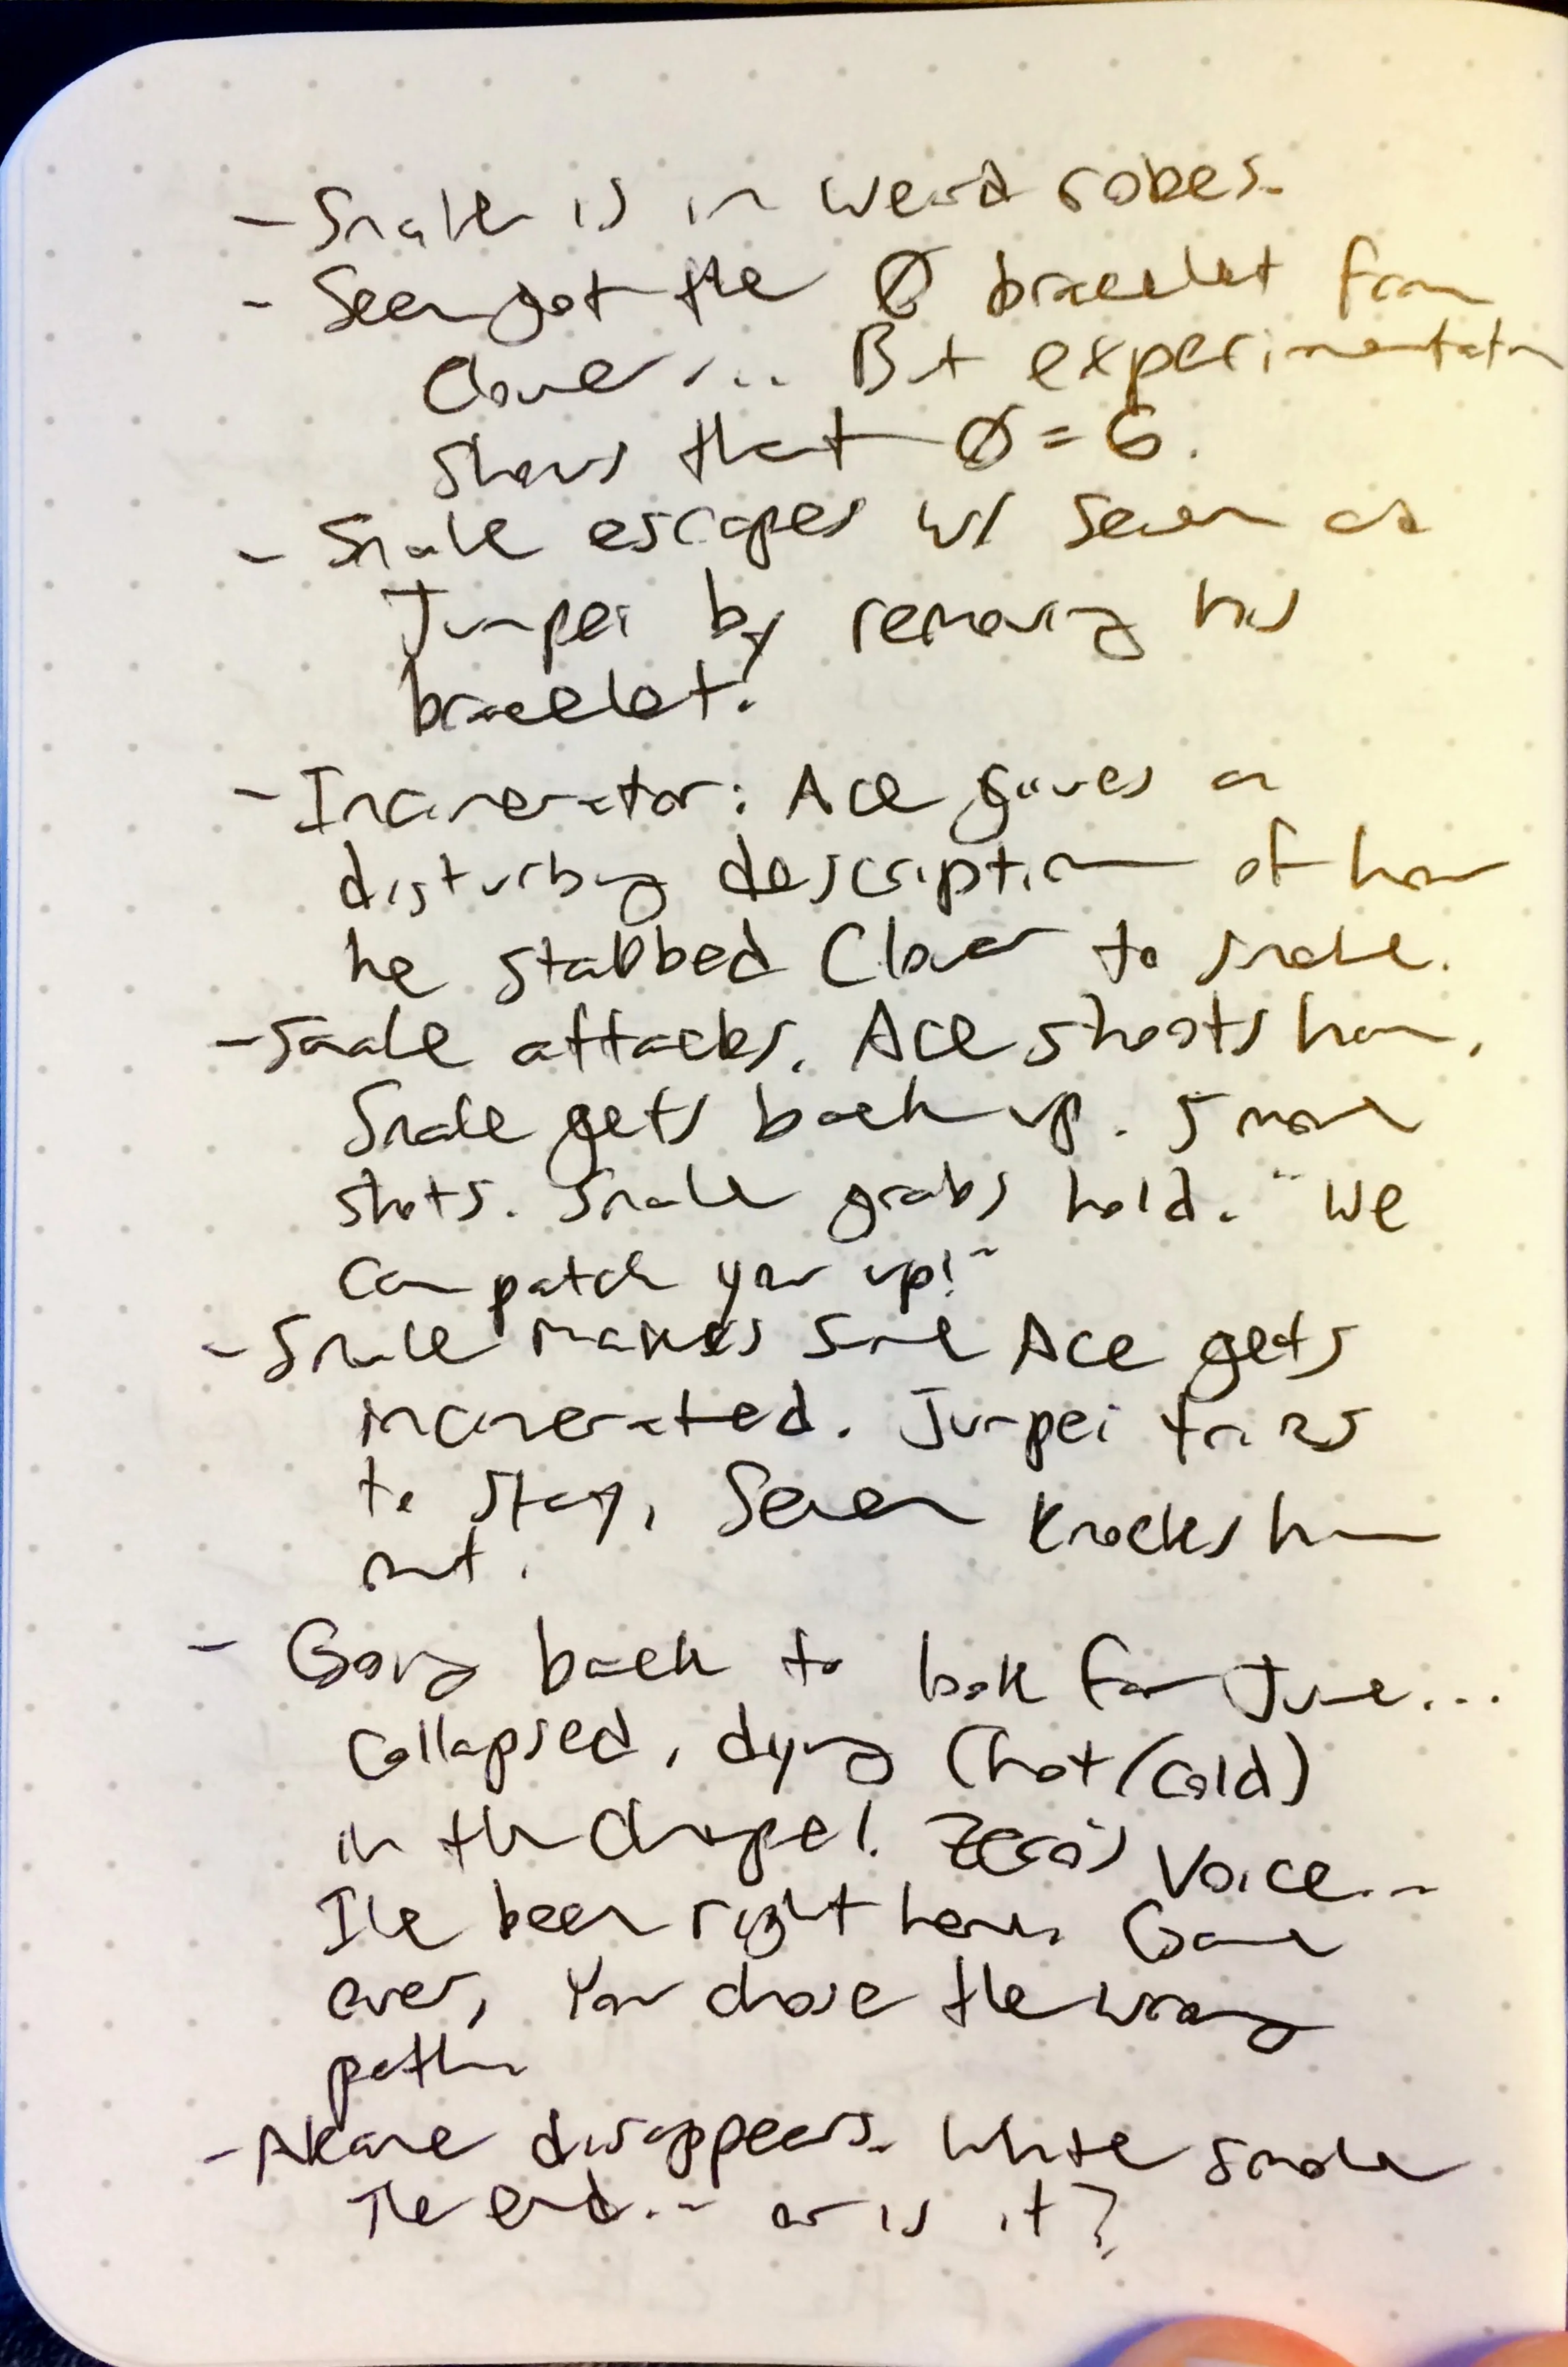 - Snake is in weird robes.
- Seven got the Ø bracelet from
Clover... But experimentation
shows that Ø = 6.
- Snake escapes w/ Seven and
Junpei by removing his
bracelet.
- Incinerator: Ace gives a
disturbing description of how
he stabbed Clover to Snake.
- Snake attacks. Ace shoots him.
Snake gets back up. 5 more
shots. Snake grabs hold. "We
can patch you up!"
- Snake makes sure Ace gets
incinerated. Junpei tries
to stay, Seven knocks him
out.
- Going back to look for June...
collapsed, dying (hot/cold)
in the chapel. Zero's voice...
I've been right here. Game
over, You chose the wrong
path
- Akane disappears. White smoke
The end... or is it?